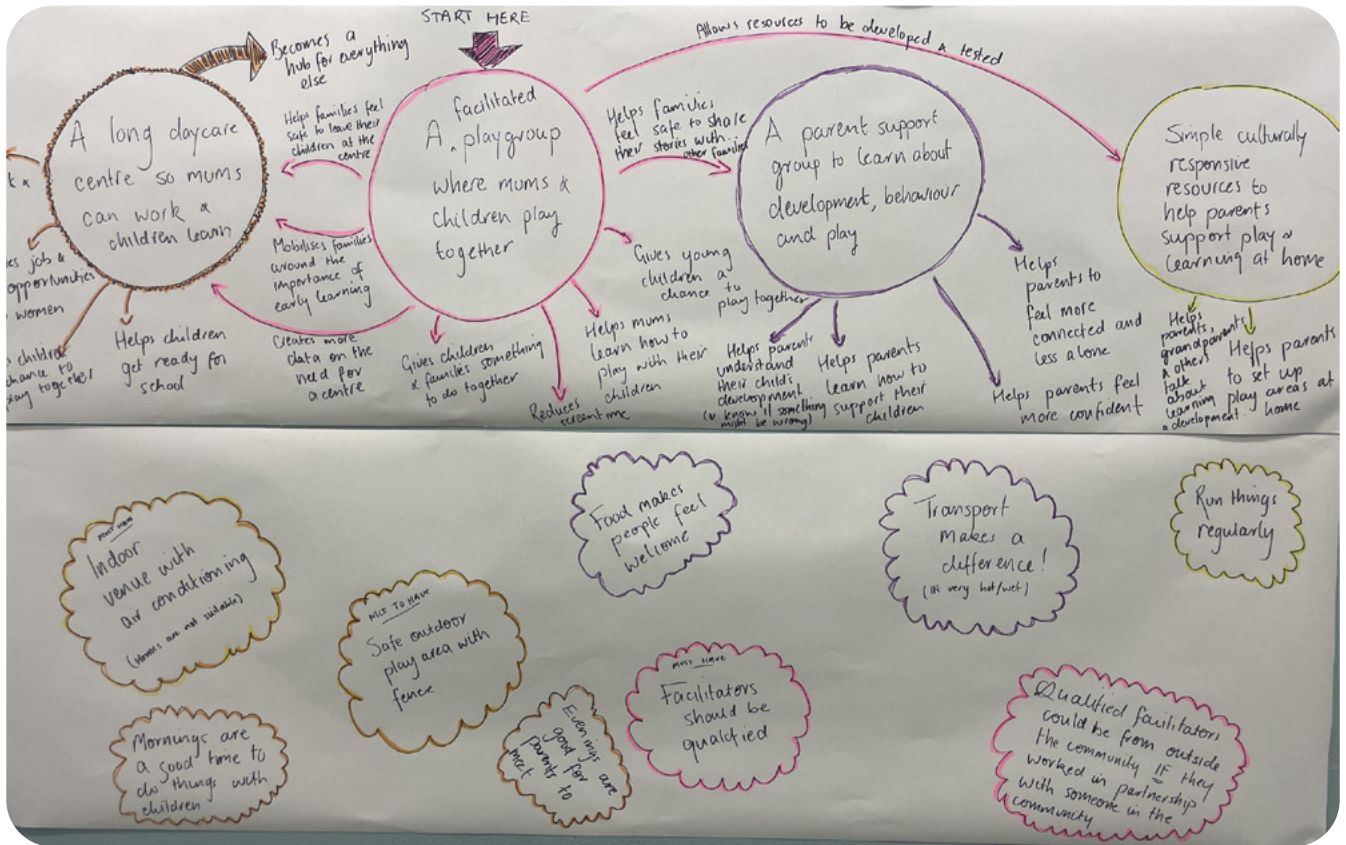 START HERE
Allows resources to be developed & tested
Becomes a
hub for everything
else
A long daycare
centre so mums
can work &
children learn
Helps families feel
safe to leave their
children at the
centre
Mobilises families
around the
importance of
early learning
Creates more
data on the
need for
a centre
job &
opportunities
women
chance to
play together
Helps children
get ready for
school
facilitated
A playgroup
where mums &
children play
together
Gives children
& families something
to do together
Reduces
screentime
Helps mums
learn how to
play with their
children
Gives young
children a
chance to
play together
Helps families
feel safe to share
their stories with...
other families
A parent support
group to learn about
development, behaviour
and play
Helps parents
understand
their child's
development
(& know if something
might be wrong)
Helps parents
learn how to
support their
children
Helps parents feel
more confident
Helps
parents to
feel more
connected and
less alone
Simple culturally
responsive
resources to
help parents
support play &
learning at home
Helps
parents,
grandparents
& others
talk
about
learning
& development
Helps parents
to set up
play areas at
home
MUST HAVE
Indoor
venue with
air conditioning
(Homes are not suitable)
Mornings are
a good time to
do things with
children
Safe outdoor
play area with
fence
Evenings are
good for
parents to
meet
Food makes
people feel
welcome
MUST HAVE
Facilitators
should be
qualified
Transport
makes a
difference!
Run things
regularly
Qualified facilitators
could be from outside
the community IF they
worked in partnership
with someone in the
community